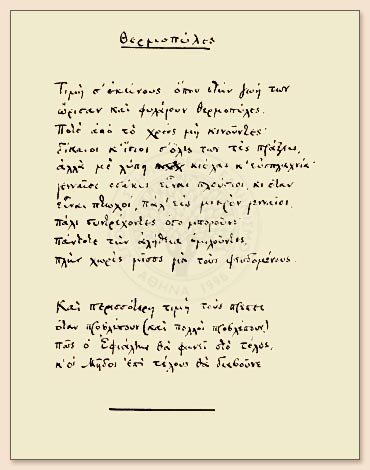 Θερμοπύλες
Τιμή σ' εκείνους όπου στην ζωή των
ώρισαν και φυλάγουν Θερμοπύλες.
Ποτέ από το χρέος μη κινούντες·
δίκαιοι κ' ίσιοι σ' όλες των τες πράξεις,
αλλά με λύπη κιόλας κ' ευσπλαχνία·
γενναίοι οσάκις είναι πλούσιοι, κι όταν
είναι πτωχοί, πάλ' εις μικρόν γενναίοι,
πάλι συντρέχοντες όσο μπορούνε·
πάντοτε την αλήθεια ομιλούντες,
πλην χωρίς μίσος για τους ψευδομένους.
Και περισσότερη τιμή τους πρέπει
όταν προβλέπουν (και πολλοί προβλέπουν)
πως ο Εφιάλτης θα φανεί στο τέλος,
κ' οι Μήδοι επί τέλους θα διαβούνε
ΑΘΗΝΑΙ